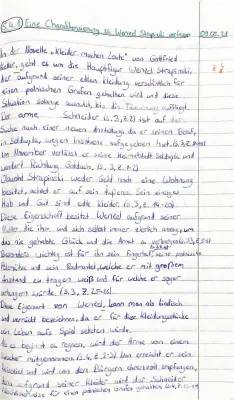 S.4.1 Eine Charakterisierung zu Wenzel Strapinski verfassen 09.02.21
In der Novelle „Kleider machen Leute" von Gottfried
Keller, geht es um die Hauptfigur Wenzel Strapinski,
der aufgrund seiner edlen Kleidung versehentlich für
einen polnischen Grafen gehalten wird und diese
Situation solange ausnutzt, bis die auffliegt.
Der arme Schneider (S. 3, Z. 2) ist auf der
Suche nach einer neuen Anstellung, da er seinen Beruf,
in Seldwyla, wegen Insolvenz aufgegeben hat.
Im November verlässt er seine Heimatstadt Seldwyla und
wandert Richtung Goldach.
Obwohl Strapinski weder Geld noch eine Wohnung
besitzt, achtet er auf sein Äußeres. Sein einziges
Hab und Gut sind edle Kleider.
Diese Eigenschaft besitzt Wenzel aufgrund seiner
Mutter, die ihm und sich selbst immer zierlich anzog, um
das nie gehabte Glück und die Armut zu verbergen
Besonders wichtig ist für ihn sein polnische
Pelzmütze und sein Radmantel, welchen er mit großem
Anstand zu tragen weiß und für welche er sogar
verhungern würde. (S. 3, Z. 25-26)
Diese Eigenart von Wenzel, kann man als kindisch
und verrückt bezeichnen, da er für diese Kleidungsstücke
sein Leben aufs Spiel setzten würde.
Als es beginnt zu regnen, wird der Arme von einem
Kutscher mitgenommen. Nun erreicht er sein
und wird von den Bürgern empfangen,
denn aufgrund seiner Kleider wird der Schneider
für einen polnischen Grafen gehalten